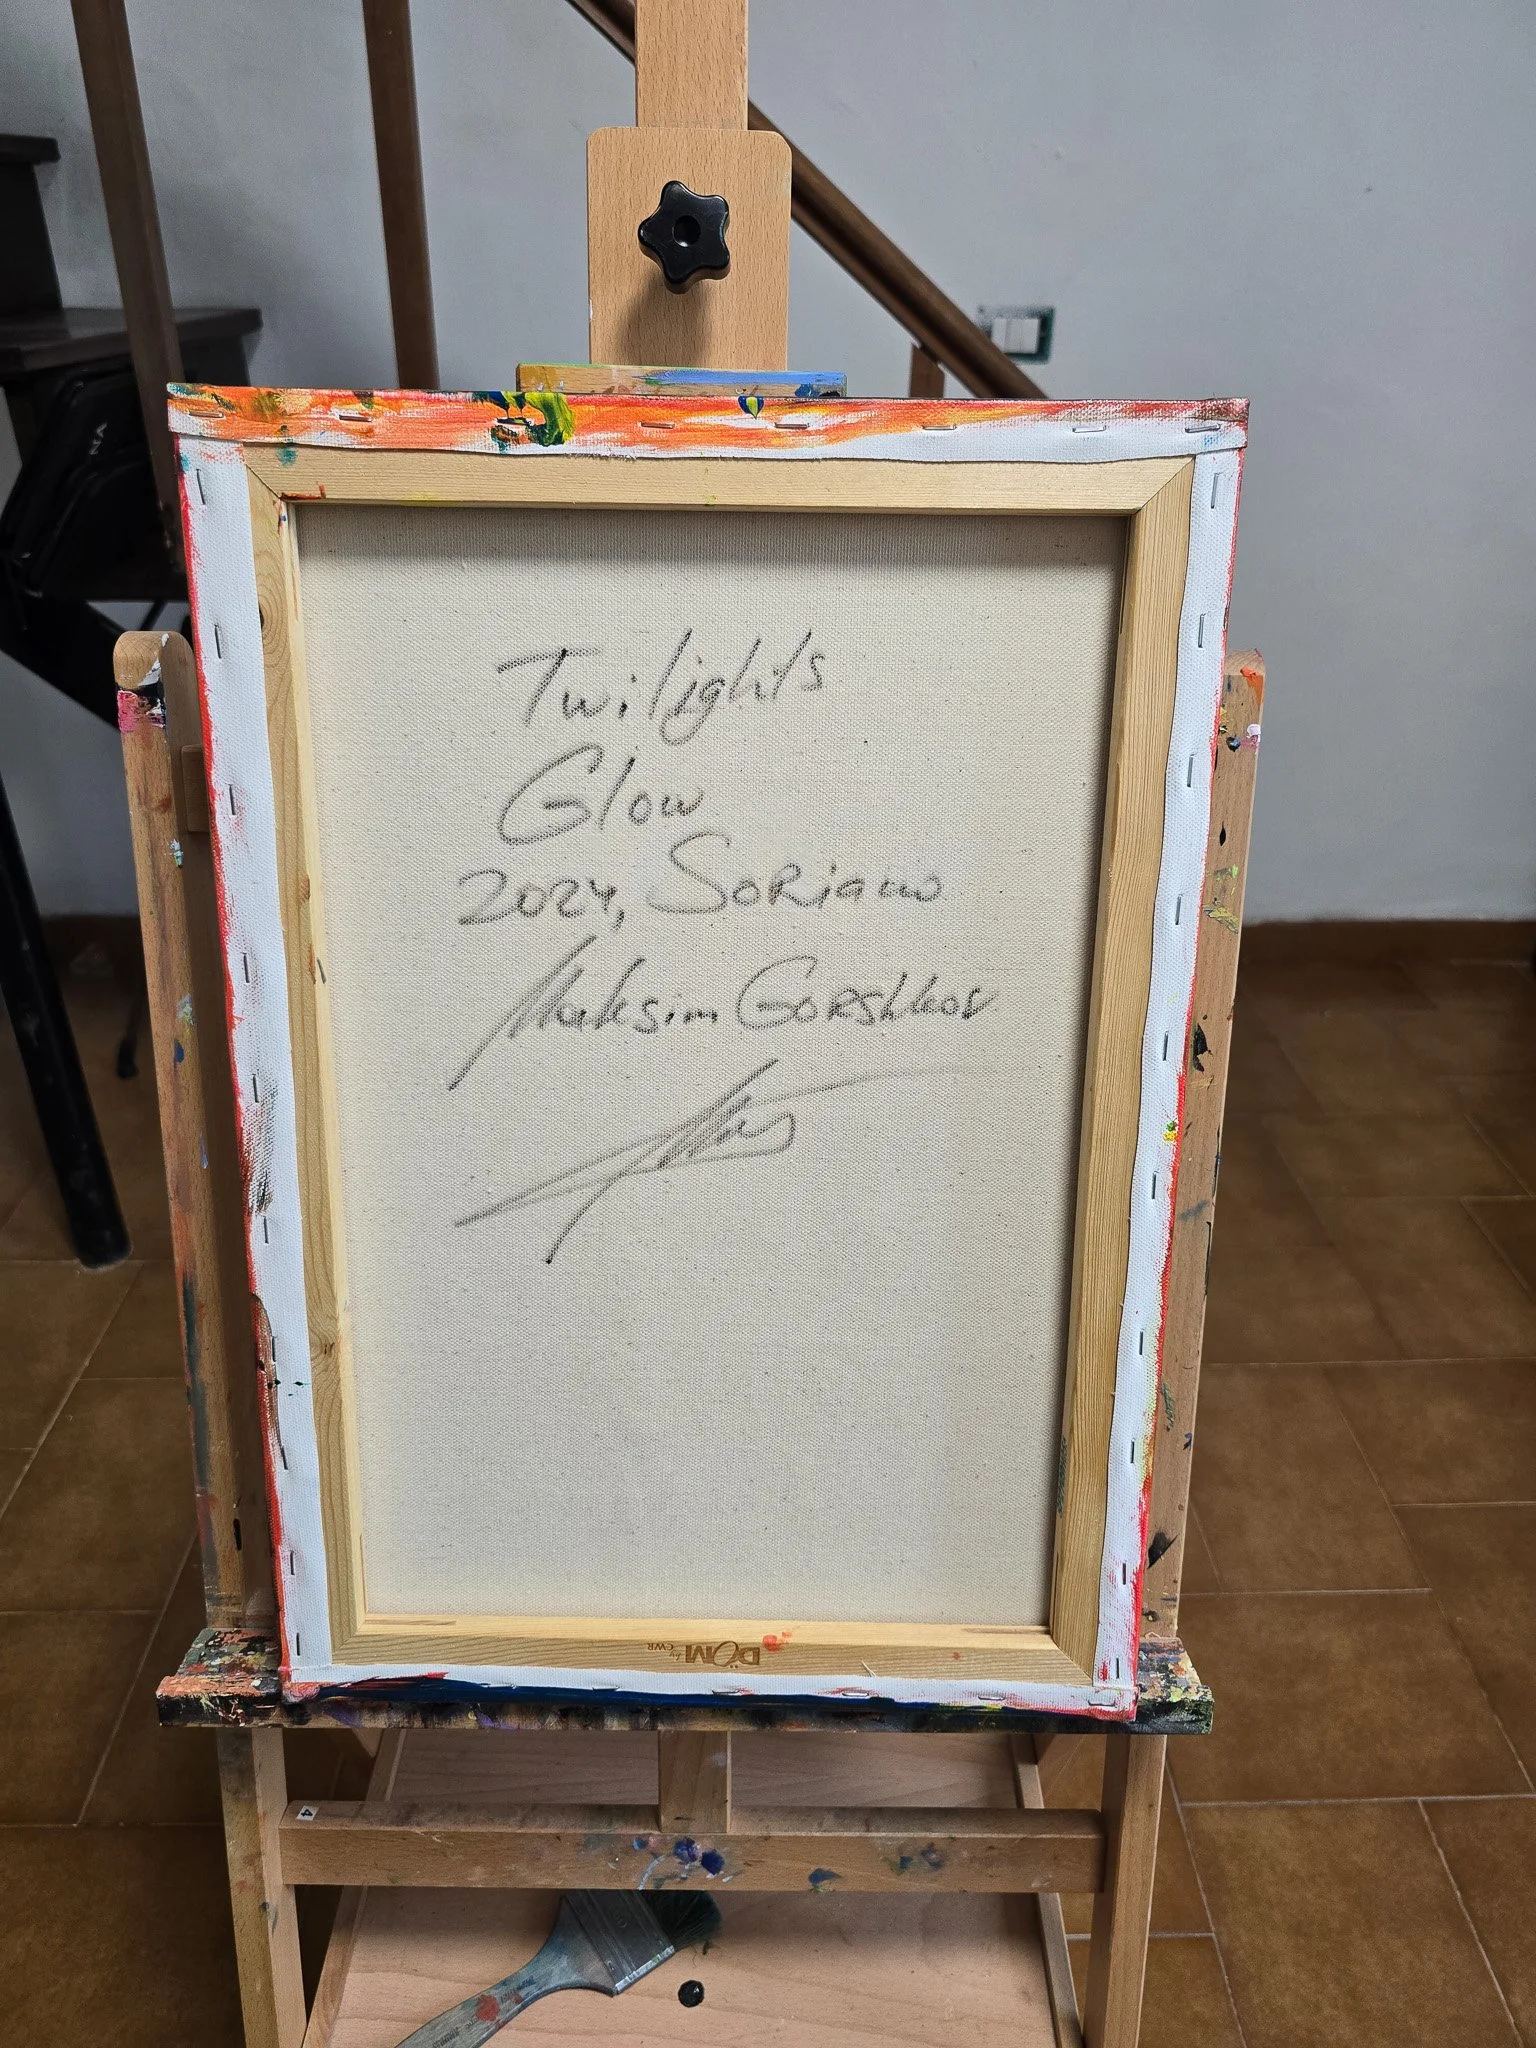 Twilights
Glow
2024, Soriano
Maksim Gorshkov
DÖM
by CWR
4